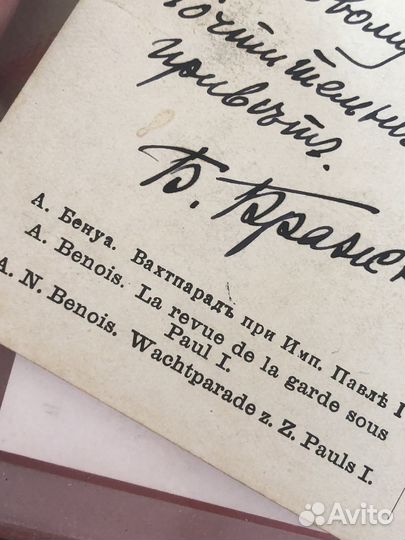 почтительный
привѣтъ.
А. Бенуа. Вахтпарадъ при Имп. Павлѣ I
A. Benois. La revue de la garde sous
Paul I.
A. N. Benois. Wachtparade z. Z. Pauls I.
Avito